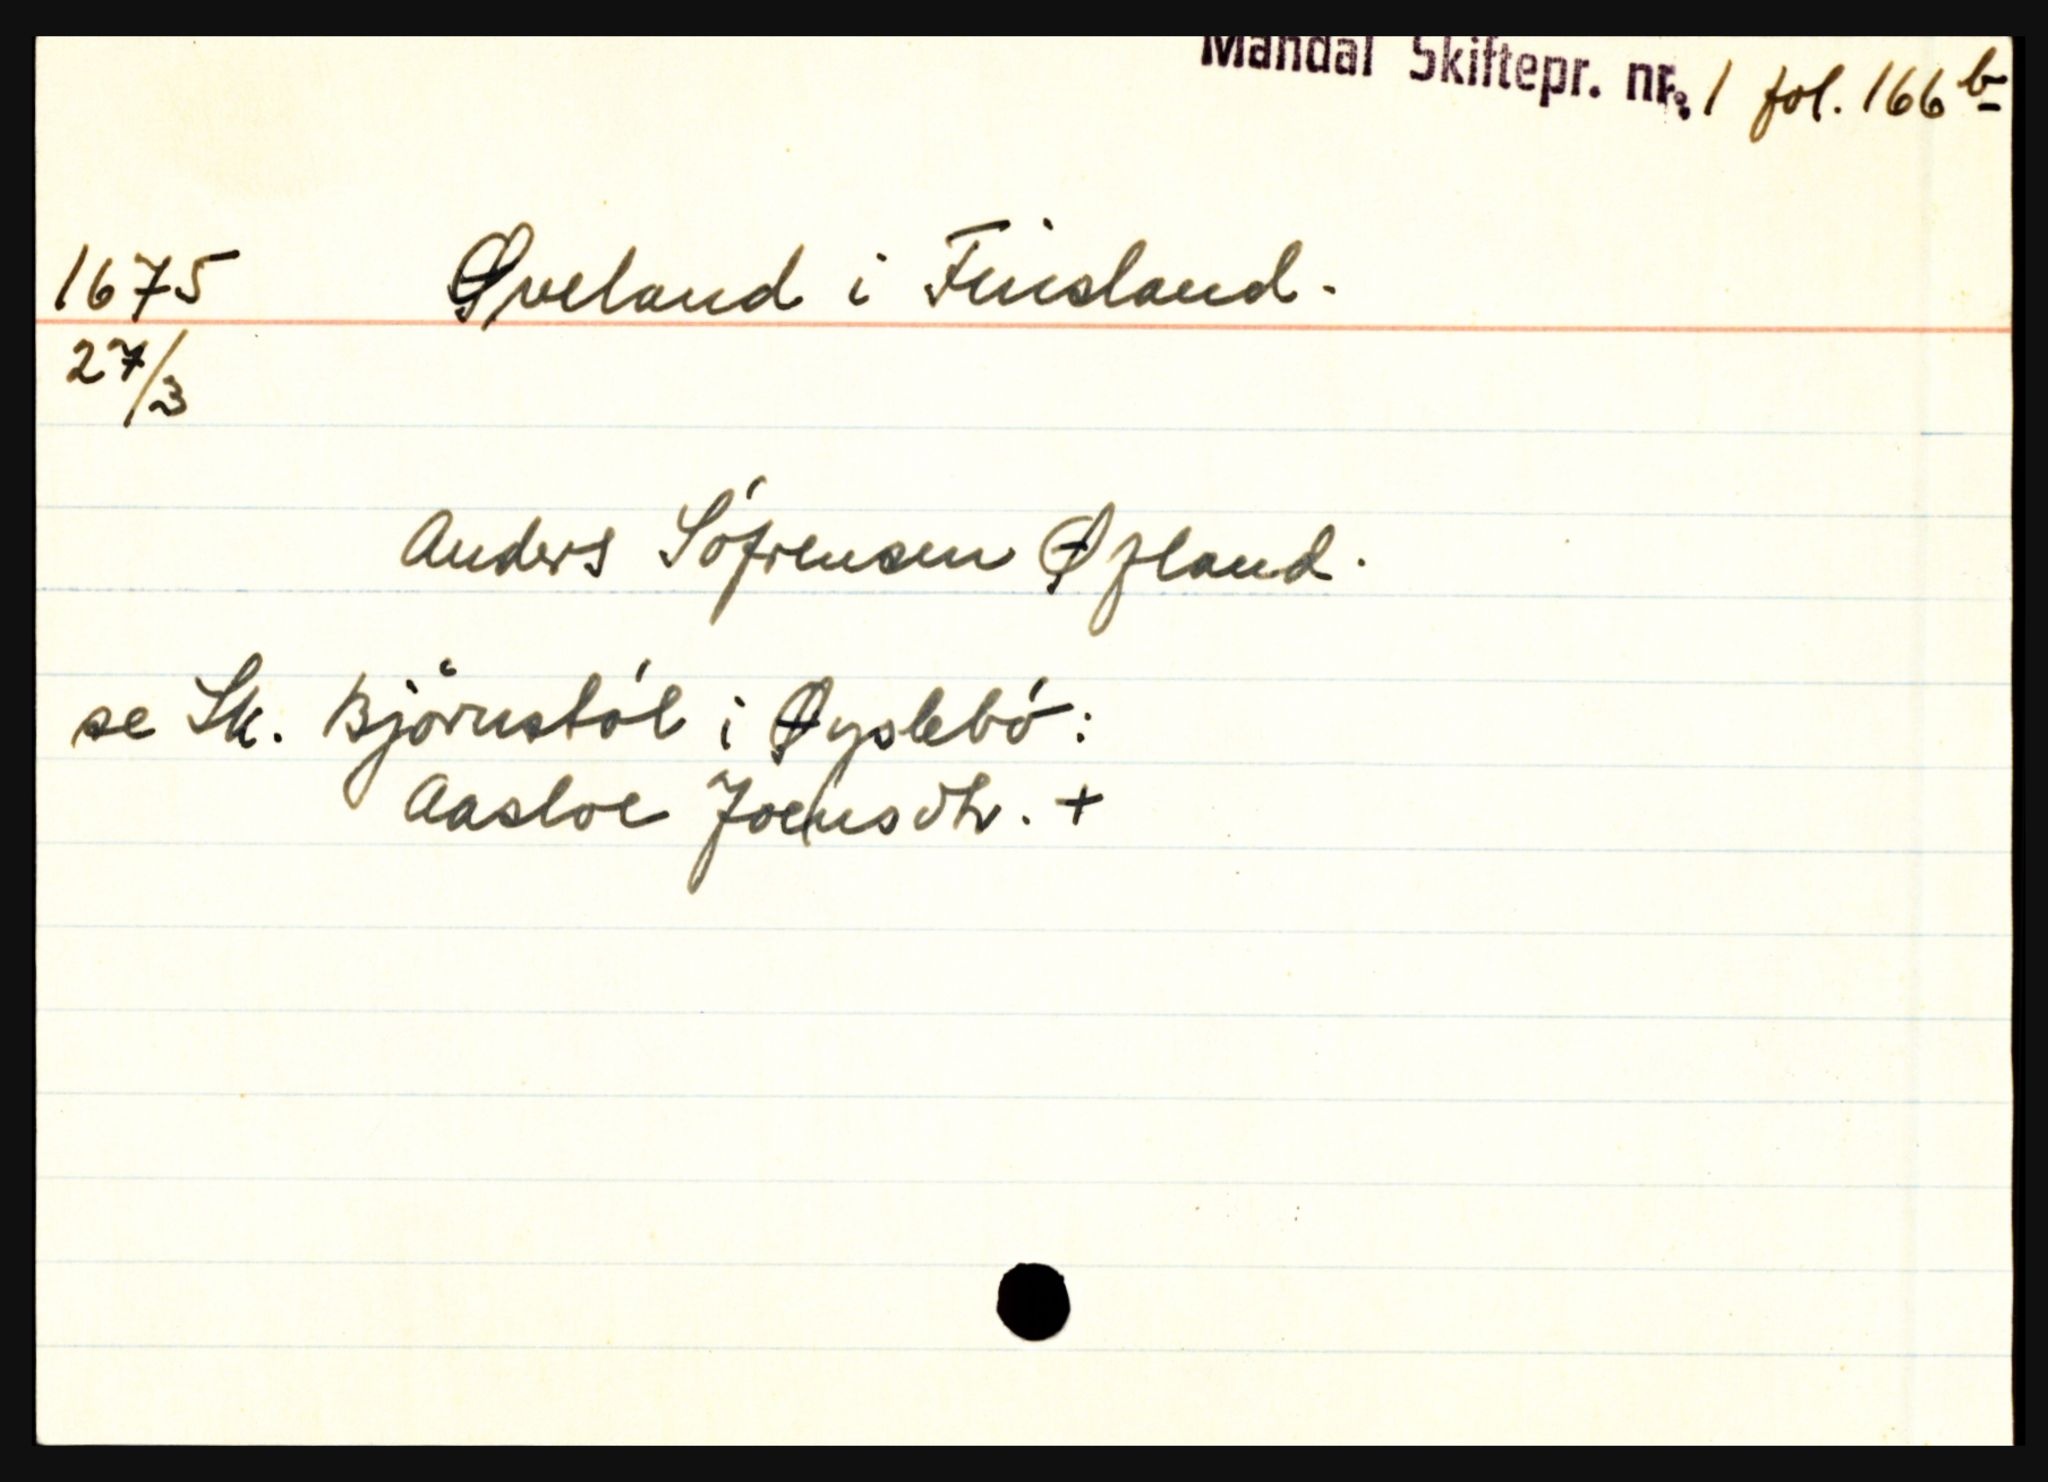 Mandal Skiftepr. nr. 1 fol. 166 b
1675 Øveland i Finsland.
27/3
Anders Söfrensen Øfland.
se Sk. Björnstöl i Øyslebö:
Aasloe Joensdtr. +